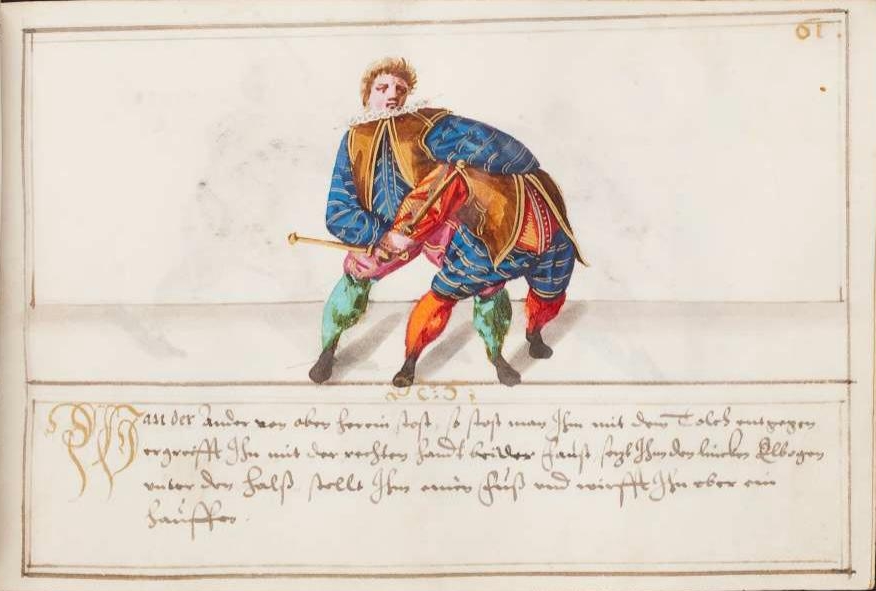 61.
Wan der Ander von oben herein stost, so stost man Ihm mit dem Tolch entgegen
ergreifft Ihn mit der rechten handt bei der faust setzt Ihm den lincken Elbogen
unter den halß stellt Ihm einen fuß und wirfft Ihn uber ein
hauffen.